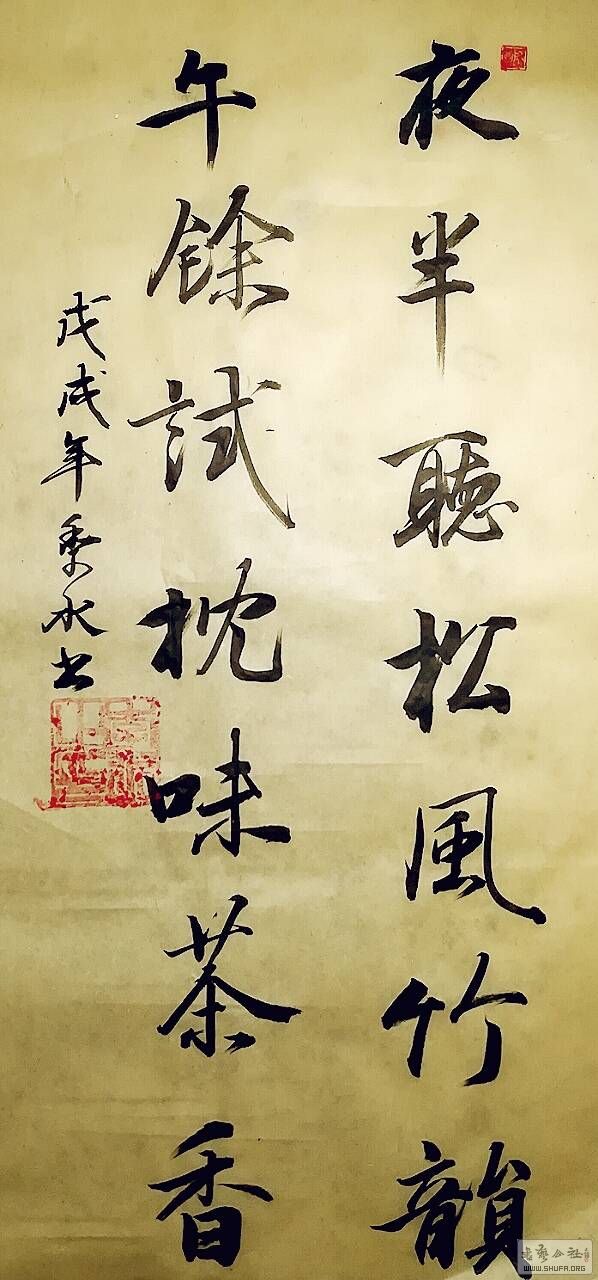 夜半聽松風竹韻
午餘試枕味茶香
戊戌年黍水书
書藝公社
WWW.SHUFA.ORG